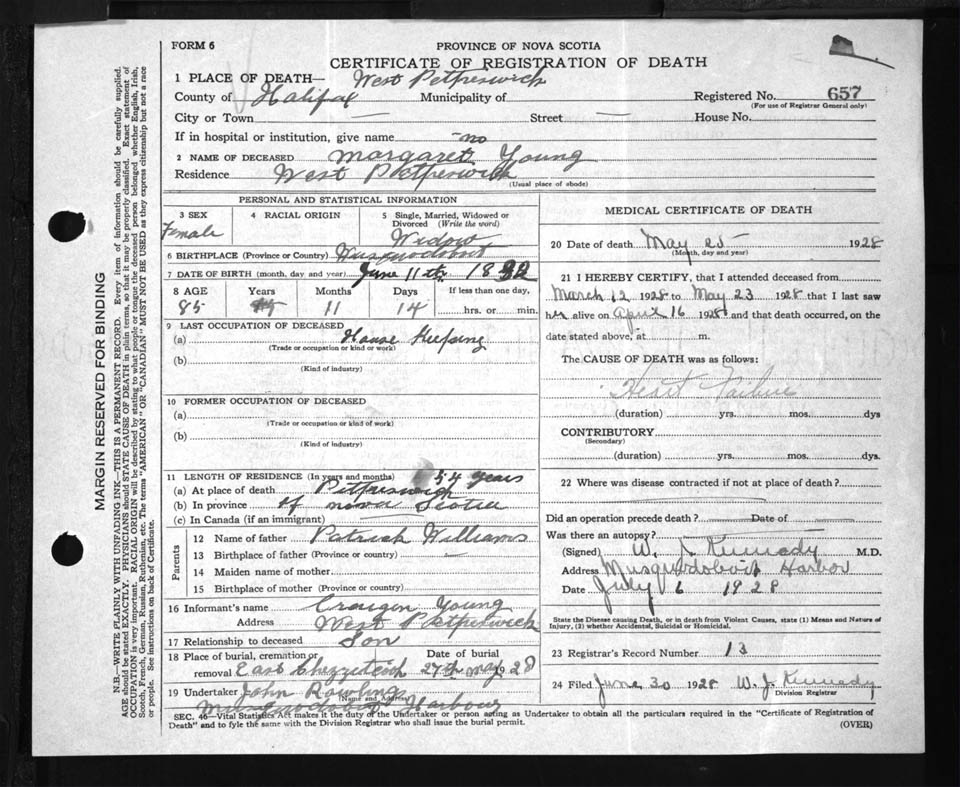 FORM 6
PROVINCE OF NOVA SCOTIA
CERTIFICATE OF REGISTRATION OF DEATH
1 PLACE OF DEATH— West Petpeswich
County of Halifax Municipality of Registered No. 657
(For use of Registrar General only)
City or Town — Street — House No.
If in hospital or institution, give name no
2 NAME OF DECEASED Margaret Young
Residence West Petpeswich
(Usual place of abode)
PERSONAL AND STATISTICAL INFORMATION
3 SEX Female
4 RACIAL ORIGIN
5 Single, Married, Widowed or Divorced (Write the word)
Widow
6 BIRTHPLACE (Province or Country) Musquodobot
7 DATE OF BIRTH (month, day and year) June 11th 18
8 AGE Years Months Days If less than one day,
85 11 14 hrs. or min.
9 LAST OCCUPATION OF DECEASED
(a) House Keeping
(Trade or occupation or kind or work)
(b)
(Kind of industry)
10 FORMER OCCUPATION OF DECEASED
(a)
(Trade or occupation or kind of work)
(b)
(Kind of industry)
11 LENGTH OF RESIDENCE (In years and months) 54 years
(a) At place of death Pitpeswich
(b) In province of Nova Scotia
(c) In Canada (if an immigrant)
Parents
12 Name of father Patrick Williams
13 Birthplace of father (Province or country) —
14 Maiden name of mother
15 Birthplace of mother (Province or country)
16 Informant's name Young
Address West Petpeswick
17 Relationship to deceased Son
18 Place of burial, cremation or removal East Chezzetcook
Date of burial 27th May 1928
19 Undertaker John Rowlings
(Name and Address)
Musquodoboit Harbour
MEDICAL CERTIFICATE OF DEATH
20 Date of death May 25 1928
(Month, day and year)
21 I HEREBY CERTIFY, that I attended deceased from
March 12 1928 to May 23 1928 that I last saw
her alive on April 16 1928 and that death occurred, on the
date stated above, at m.
The CAUSE OF DEATH was as follows:
Heart Failure
(duration) yrs. mos. dys
CONTRIBUTORY
(Secondary)
(duration) yrs. mos. dys.
22 Where was disease contracted if not at place of death?
Did an operation precede death? Date of
Was there an autopsy?
(Signed) W. J. Kennedy M.D.
Address Musquodoboit Harbor
Date July 6 1928
State the Disease causing Death, or in death from Violent Causes, state (1) Means and Nature of
Injury, (2) whether Accidental, Suicidal or Homicidal.
23 Registrar's Record Number 13
24 Filed June 30 1928 W. J. Kennedy
Division Registrar
SEC. 46—Vital Statistics Act makes it the duty of the Undertaker or person acting as Undertaker to obtain all the particulars required in the "Certificate of Registration of
Death" and to fyle the same with the Division Registrar who shall issue the burial permit.
(OVER)
MARGIN RESERVED FOR BINDING
N.B.—WRITE PLAINLY WITH UNFADING INK—THIS IS A PERMANENT RECORD. Every item of information should be carefully supplied.
AGE should be stated EXACTLY. PHYSICIANS should STATE CAUSE OF DEATH in plain terms, so that it may be properly classified. Exact statement of
OCCUPATION is very important. RACIAL ORIGIN will be described by stating to what people or tongue the deceased person belonged whether English, Irish,
Scotch, French, German, Russian, Ruthenian, etc. The terms "AMERICAN" OR "CANADIAN" MUST NOT BE USED as they express citizenship but not a race
or people. See instructions on back of Certificate.